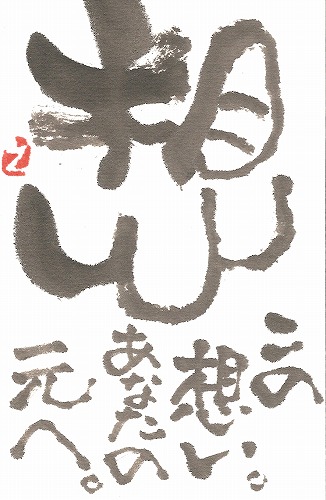 想
この
想い。
あなたの
元へ。